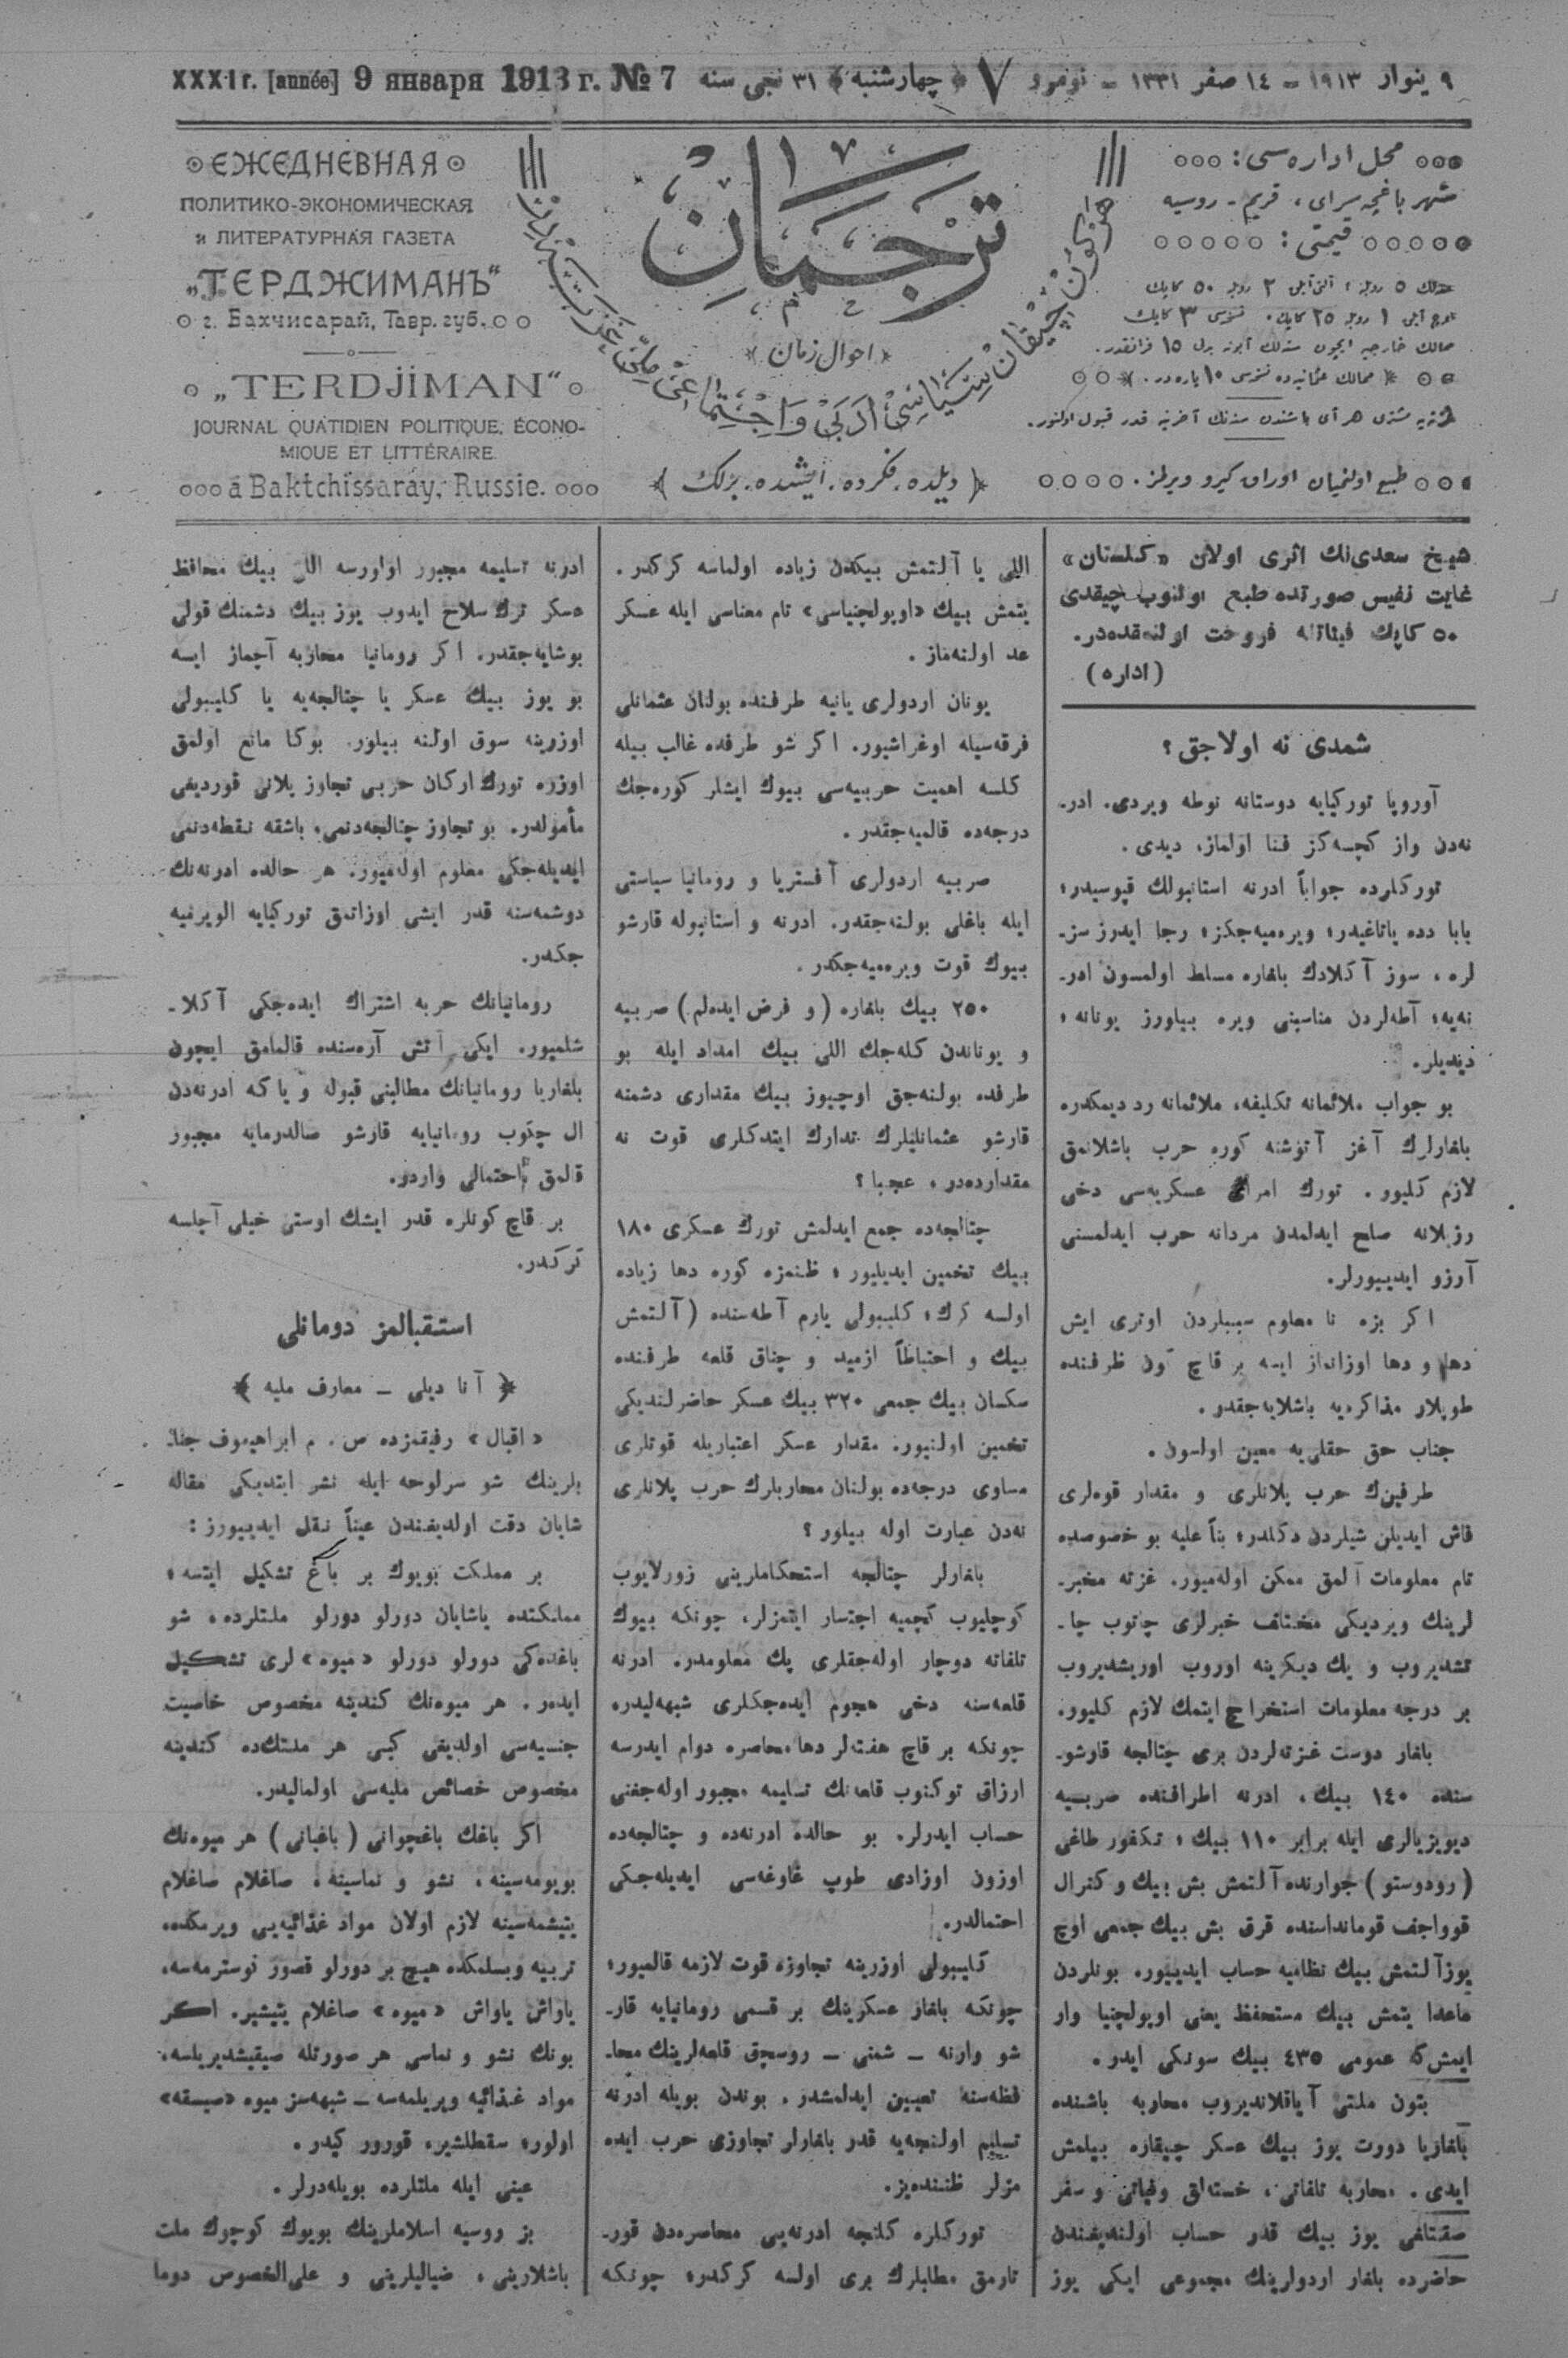 ۹ ینوار ۱۹۱۳ – ١٤ صفر ۱۳۳۱ – نومرو ۷ ﴿چهارشنبه﴾ ۳۱ نجی سنه
XXXI г. [année] 9 января 1913 г. № 7
محل اداره‌سی:
شهر باغچه‌سرای، قریم - روسیه
قیمتی:
سنه‌لك ٥ روبله؛ آلتی آیلق ۳ روبله ٥٠ كاپك
اوچ آیلق ۱ روبله ۲٥ كاپك. نسخه‌سی ۳ كاپك
ممالك خارجیه ایچون سنه‌لك آبونه بدلی ۱٥ فرانقدر.
﴿ممالك عثمانیه‌ده نسخه‌سی ۱۰ پاره‌در.﴾
مشتری هر آی باشندن سنه‌نك آخرینه قدر قبول اولنور.
طبع اولنمیان اوراق كیرو ویرلمز.
ترجمان
﴿احوال زمان﴾
هر كون چیقان سیاسی، ادبی و اجتماعی ملی غزته‌در
﴿دیلده، فكرده، ایشده، برلك﴾
ЕЖЕДНЕВНАЯ
ПОЛИТИКО-ЭКОНОМИЧЕСКАЯ
и ЛИТЕРАТУРНАЯ ГАЗЕТА
„ТЕРДЖИМАНЪ“
г. Бахчисарай, Тавр. губ.
„TERDJIMAN“
JOURNAL QUATIDIEN POLITIQUE, ÉCONO-
MIQUE ET LITTÉRAIRE.
á Baktchissaráy, Russie.
شیخ سعدی‌نك اثری اولان «كلستان»
غایت نفیس صورتده طبع اولنوب چیقدی
٥٠ كاپك فیئاتله فروخت اولنه‌قده‌در.
(اداره)
شمدی نه اولاجق؟
آوروپا توركیایه دوستانه نوطه ویردی. ادر-
نه‌دن واز كچسه‌كز فنا اولماز، دیدی.
توركلرده جواباً ادرنه استانبولك قپوسیدر؛
بابا دده یاتاغیدر؛ ویره‌میه‌جكز؛ رجا ایدرز سز-
لره، سوز آكلادك بلغاره مسلط اولمسون ادر-
نه‌یه؛ آطه‌لردن مناسبنی ویره بیلورز یونانه؛
دیدیلر.
بو جواب ملائمانه تكلیفه، ملائمانه رد دیمكدره
بلغارلرك آغز آتوشنه كوره حرب باشلانمق
لازم كلیور. تورك امرای عسكریه‌سی دخی
رزیلانه صلح ایدلمدن مردانه حرب ایدلمسنی
آرزو ایدییورلر.
اكر بزه نا معلوم سببلردن اوتری ایش
دها و دها اوزانماز ایسه بر قاچ كون ظرفنده
طوپلار مذاكره‌یه باشلایه‌جقدر.
جناب حق حقلی‌یه معین اولسون.
طرفین‌ك حرب پلانلری و مقدار قوه‌لری
فاش ایدیلن شیلردن دكلدر؛ بناً علیه بو خصوصده
تام معلومات آلمق ممكن اوله‌میور. غزته مخبر-
لرینك ویردیكی مختلف خبرلری چاتوب چا-
تشدیروب و یك دیكرینه اوروب اوریشدیروب
بر درجه معلومات استخراج ایتمك لازم كلیور.
بلغار دوست غزته‌لردن بری چتالجه قارشو-
سنده ۱٤۰ بیك، ادرنه اطرافنده صربیه
دیویزیالری ایله برابر ۱۱۰ بیك؛ تكفور طاغی
(رودوستو) جوارنده آلتمش بش بیك و كنرال
قوواچف قومانداسنده قرق بش بیك جمعی اوچ
یوز آلتمش بیك نظامیه حساب ایدییور. بونلردن
ماعدا یتمش بیك مستحفظ یعنی اوپولچنیا وار
ایمش كه عمومی ٤۳٥ بیك سونكی ایدر.
بتون ملتی آیاقلاندیروب محاربه باشنده
بلغاریا دورت یوز بیك عسكر چیقاره بیلمش
ایدی. محاربه تلفاتی، خسته‌لق وفیاتی و سفر
صقنتلفی یوز بیك قدر حساب اولندیغندن
حاضرده بلغار اردولرینك مجموعی ایكی یوز
اللی یا آلتمش بیكدن زیاده اولماسه كركدر.
یتمش بیك «اوپولچنیاسی» تام معناسی ایله عسكر
عد اولنه‌ماز.
یونان اردولری یانیه طرفنده بولنان عثمانلی
فرقه‌سیله اوغراشیور. اكر شو طرفده غالب بیله
كلسه اهمیت حربیه‌سی بیوك ایشلر كوره‌جك
درجه‌ده قالمیه‌جقدر.
صربیه اردولری آفستریا و رومانیا سیاستی
ایله باغلی بولنه‌جقدر. ادرنه و استانبوله قارشو
بیوك قوت ویره‌میه‌جكدر.
۲٥۰ بیك بلغاره (و فرض ایده‌لم) صربیه
و یوناندن كله‌جك اللی بیك امداد ایله بو
طرفده بولنه‌جق اوچیوز بیك مقداری دشمنه
قارشو عثمانلیلرك تدارك ایتدكلری قوت نه
مقدارده‌در، عجبا؟
چتالجه‌ده جمع ایدلمش تورك عسكری ۱۸۰
بیك تخمین ایدیلیور؛ ظنمزه كوره دها زیاده
اولسه كرك؛ كلیبولی یارم آطه‌سنده (آلتمش
بیك و احتیاطاً ازمید و چناق قلعه طرفنده
سكسان بیك جمعی ۳۲۰ بیك عسكر حاضرلندیكی
تخمین اولنیور. مقدار عسكر اعتباریله قوتلری
مساوی درجه‌ده بولنان محاربلرك حرب پلانلری
نه‌دن عبارت اوله بیلور؟
بلغارلر چتالجه استحكاملرینی زورلایوب
كوچلیوب كچمیه اجتسار ایتمزلر، چونكه بیوك
تلفاته دوچار اوله‌جقلری پك معلومدر. ادرنه
قلعه‌سنه دخی هجوم ایده‌جكلری شبهه‌لیدره
چونكه بر قاچ هفته‌لر دها محاصره دوام ایدرسه
ارزاق توكنوب قلعه‌نك تسلیمه مجبور اوله‌جغنی
حساب ایدرلر. بو حالده ادرنه‌ده و چتالجه‌ده
اوزون اوزادی طوپ غاوغه‌سی ایدیله‌جكی
احتمالدر.
كلیبولی اوزرینه تجاوزه قوت لازمه قالمیور؛
چونكه بلغار عسكرینك بر قسمی رومانیایه قار-
شو وارنه – شمنی – روسچق قلعه‌لرینك محا-
فظه‌سنه تعیین ایدلمشدر. بوندن بویله ادرنه
تسلیم اولنجه‌یه قدر بلغارلر تجاوزی حرب ایده
مزلر ظننده‌یز.
توركلره كلنجه ادرنه‌یی محاصره‌دن قور-
تارمق مطلبلرك بری اولسه كركدر؛ چونكه
ادرنه تسلیمه مجبور اولورسه اللی بیك محافظ
عسكر ترك سلاح ایدوب یوز بیك دشمنك قولی
بوشایه‌جقدر. اكر رومانیا محاربه آچماز ایسه
بو یوز بیك عسكر یا چتالجه‌یه یا كلیبولی
اوزرینه سوق اولنه بیلور. بوكا مانع اولمق
اوزره تورك اركان حربی تجاوز پلانی قوردیغی
مأمولدر. بو تجاوز چتالجه‌دنمی، باشقه نقطه‌دنمی
ایدیله‌جكی معلوم اوله‌میور. هر حالده ادرنه‌نك
دوشمه‌سنه قدر ایشی اوزاتمق توركیایه الویرمیه
جكدر.
رومانیانك حربه اشتراك ایده‌جكی آكلا-
شلمیور. ایكی آتش آره‌سنده قالمامق ایچون
بلغاریا رومانیانك مطالبنی قبوله و یا كه ادرنه‌دن
ال چكوب رومانیایه قارشو صالدرمایه مجبور
قالمق احتمالی واردر.
بر قاچ كونلره قدر ایشك اوستی خیلی آچلسه
كركدر.
استقبالمز دومانلی
﴿آنا دیلی – معارف ملیه﴾
«اقبال» رفیقمزده ص. م ابراهیموف جنا-
بلرینك شو سرلوحه ایله نشر ایتدیكی مقاله
شایان دقت اولدیغندن عیناً نقل ایدییورز:
بر مملكت بویوك بر باغ تشكیل ایتسه؛
مملكتده یاشایان دورلو دورلو ملتلرده، شو
باغده‌كی دورلو دورلو «میوه» لری تشكیل
ایدر. هر میوه‌نك كندینه مخصوص خاصیت
جنسیه‌سی اولدیغی كبی هر ملتك‌ده كندینه
مخصوص خصائص ملیه‌سی اولمالیدر.
اكر باغك باغچوانی (باغبانی) هر میوه‌نك
بویومه‌سینه، نشو و نماسینه، صاغلام صاغلام
یتیشمه‌سینه لازم اولان مواد غذائیه‌یی ویرمكده،
تربیه وبسلمكده هیچ بر دورلو قصور كوسترمه‌سه،
یاواش یاواش «میوه» صاغلام یتیشیر. اكر
بونك نشو و نماسی هر صورتله صیقیشدیریلسه،
مواد غذائیه ویریلمه‌سه – شبهه‌سز میوه «صیسقه»
اولور؛ سقطلشیر، قورور كیدر.
عینی ایله ملتلرده بویله‌درلر.
بز روسیه اسلاملرینك بویوك كوچوك ملت
باشلارینی، ضیالیلرینی و علی‌الخصوص دوما